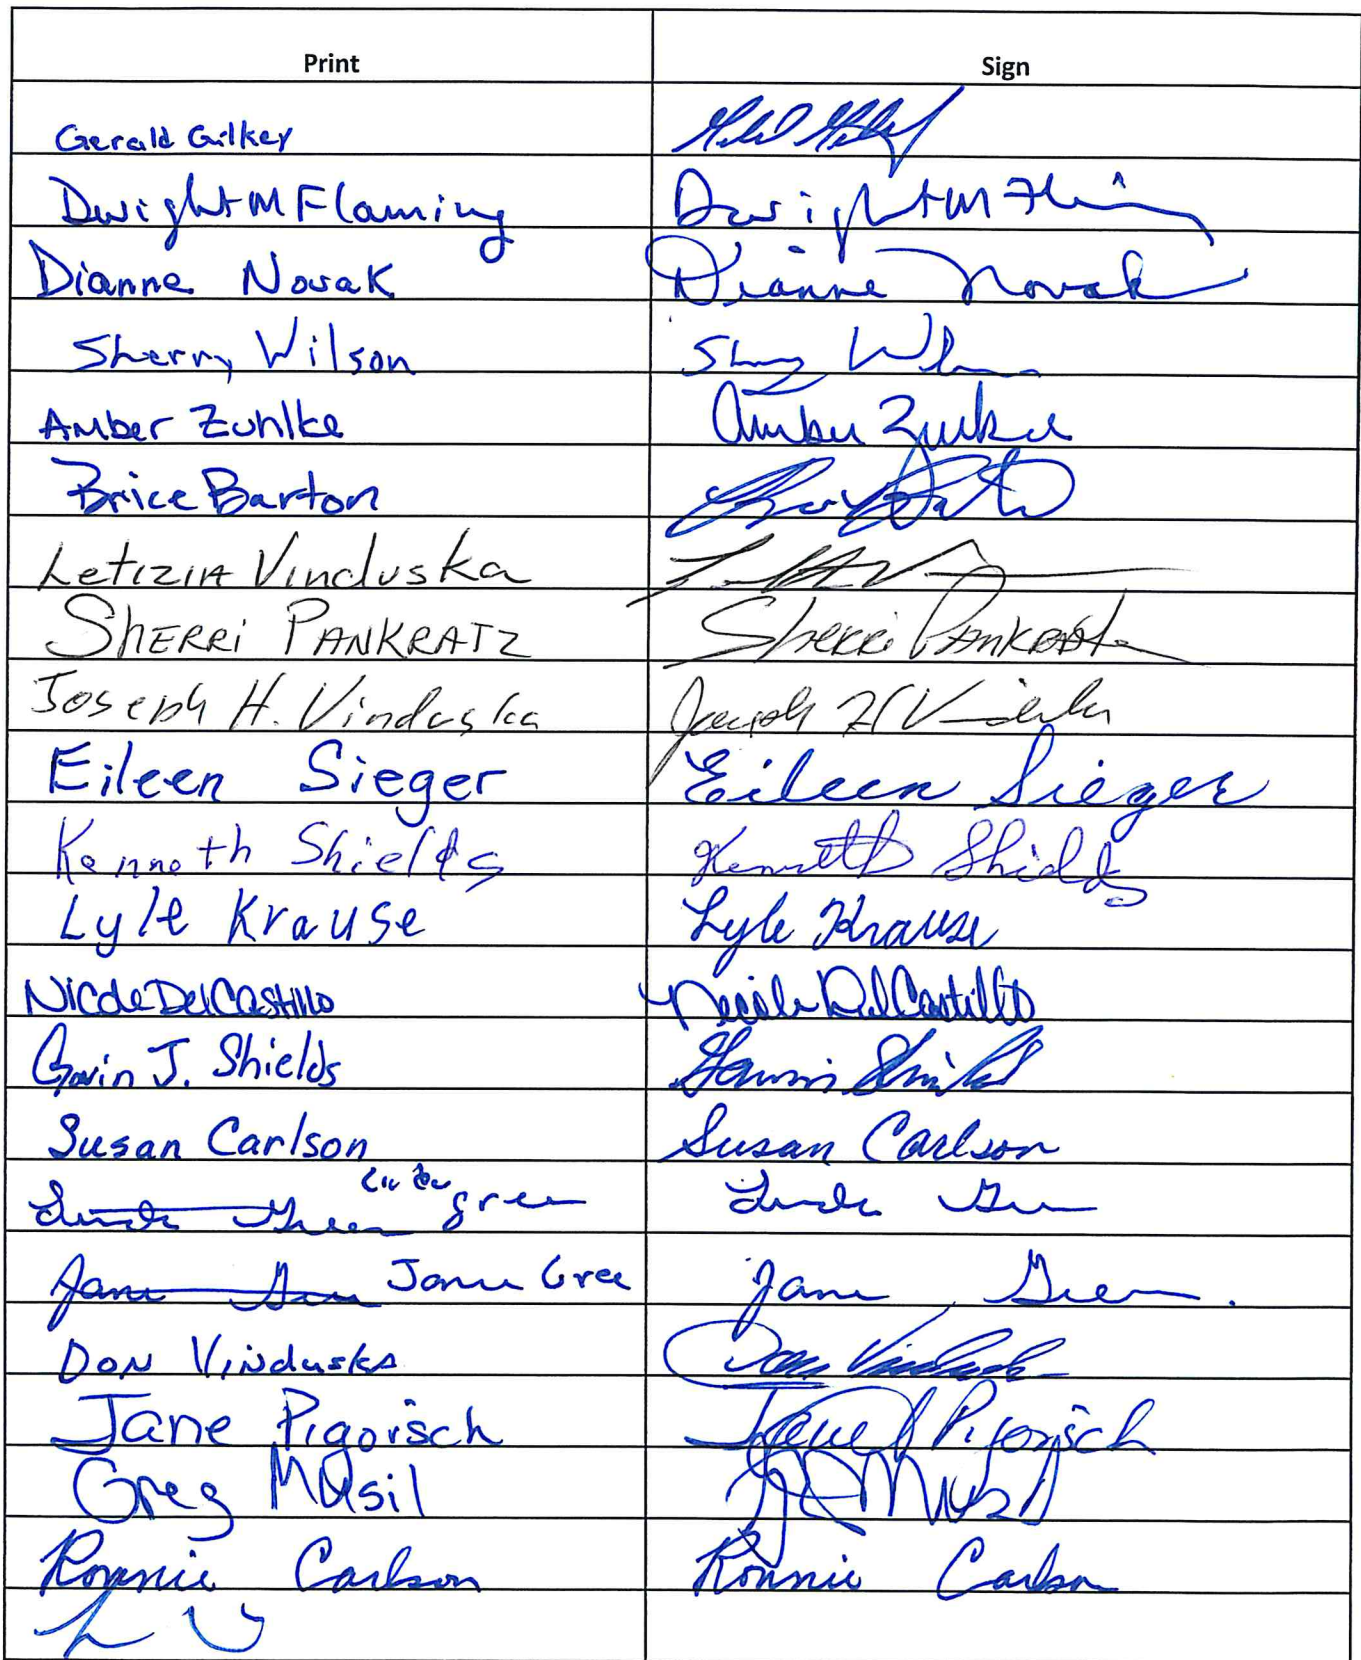 Print Sign
Gerald Gilkey
Dwight M Flaming Dwight M Flaming
Dianne Novak Dianne Novak
Sherry Wilson
Amber Zuhlke Amber
Brice Barton
Letizia Vinduska
Sherri Pankratz Sherri Pankratz
Joseph H. Vinduska Joseph H Vinduska
Eileen Sieger Eileen Sieger
Kenneth Shields Kenneth Shields
Lyle Krause Lyle Krause
Nicole DelCastillo Nicole DelCastillo
Gavin J. Shields Gavin Shields
Susan Carlson Susan Carlson
Linda Green Linda green Linda Green
Jane Green Jane Gree Jane Green
Don Vinduska Don Vinduska
Jane Pigorisch Jane Pigorisch
Greg Musil Musil
Ronnie Carlson Ronnie Carlson